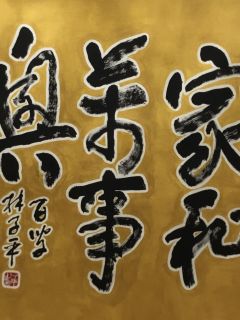 家和
萬事
興
百學
林子平